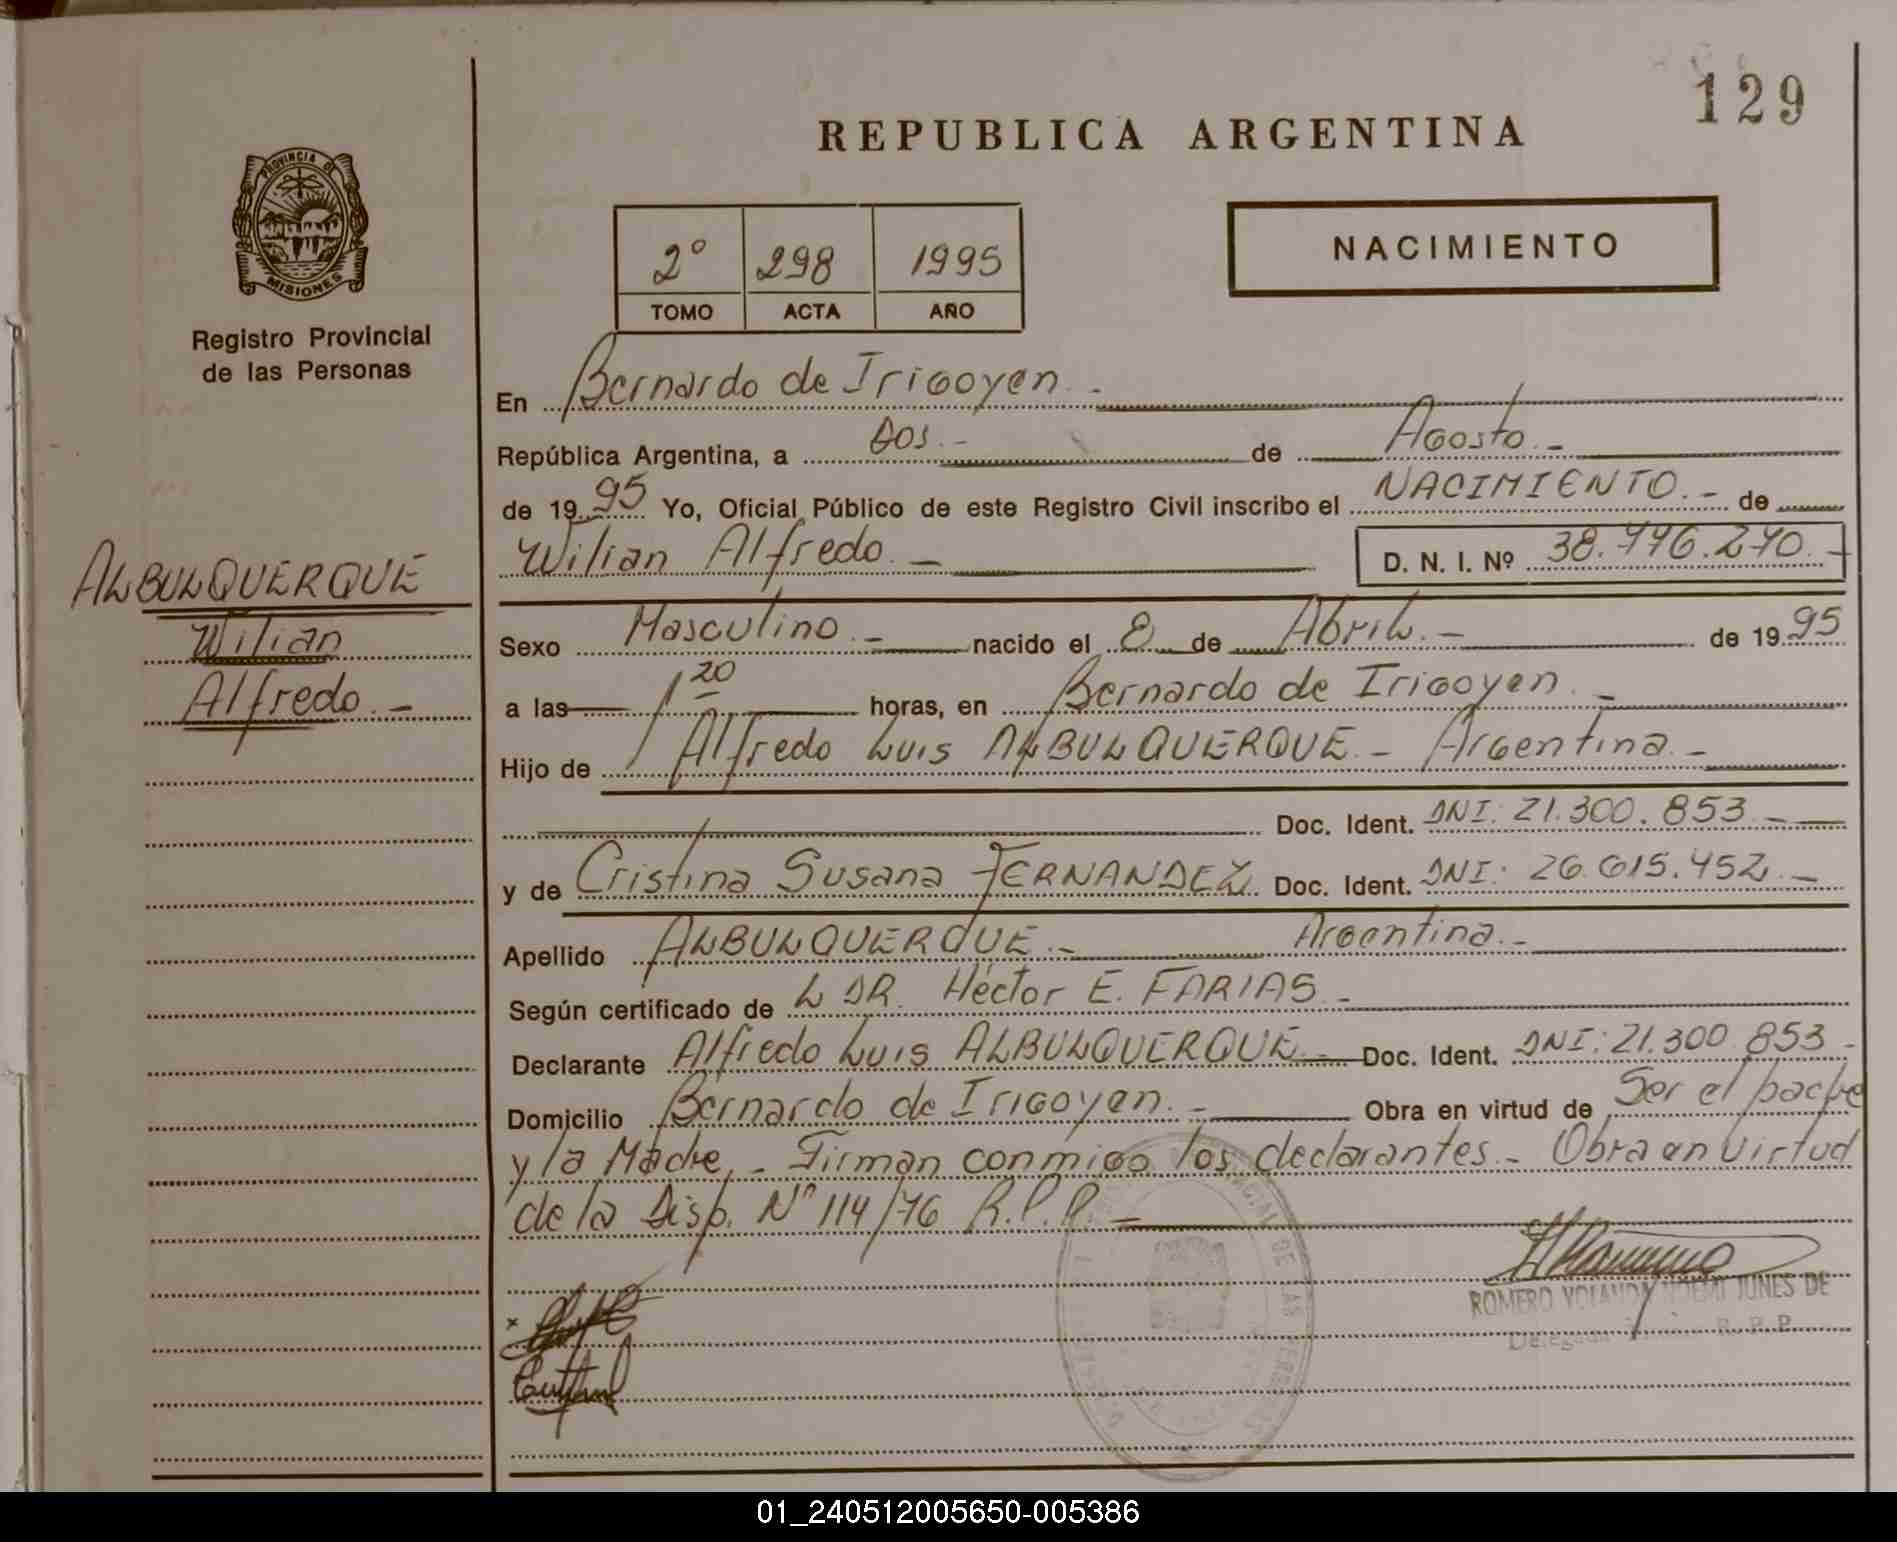 129
REPUBLICA ARGENTINA
PROVINCIA DE
MISIONES
Registro Provincial
de las Personas
2º 298 1995
TOMO ACTA AÑO
NACIMIENTO
En Bernardo de Irigoyen.-
República Argentina, a Dos.- de Agosto.-
de 1995 Yo, Oficial Público de este Registro Civil inscribo el NACIMIENTO.- de
Wilian Alfredo.- D. N. I. Nº 38.776.270.-
ALBULQUERQUE
Wilian
Alfredo.-
Sexo Masculino.- nacido el 8 de Abril.- de 1995
a las 1 20 horas, en Bernardo de Irigoyen.-
Hijo de Alfredo Luis ALBULQUERQUE.- Argentina.-
Doc. Ident. DNI: 21.300.853.-
y de Cristina Susana FERNANDEZ Doc. Ident. DNI: 26.615.452.-
Apellido ALBULQUERQUE.- Argentina.-
Según certificado de L DR. Héctor E. FARIAS.-
Declarante Alfredo Luis ALBULQUERQUE.- Doc. Ident. DNI: 21.300.853-
Domicilio Bernardo de Irigoyen.- Obra en virtud de Ser el padre
y la Madre.- Firman conmigo los declarantes.- Obra en virtud
de la Disp. Nº 114/76 R.P.P.-
ROMERO YOLANDA NOEMI JUNES DE
R. P. P.
01_240512005650-005386